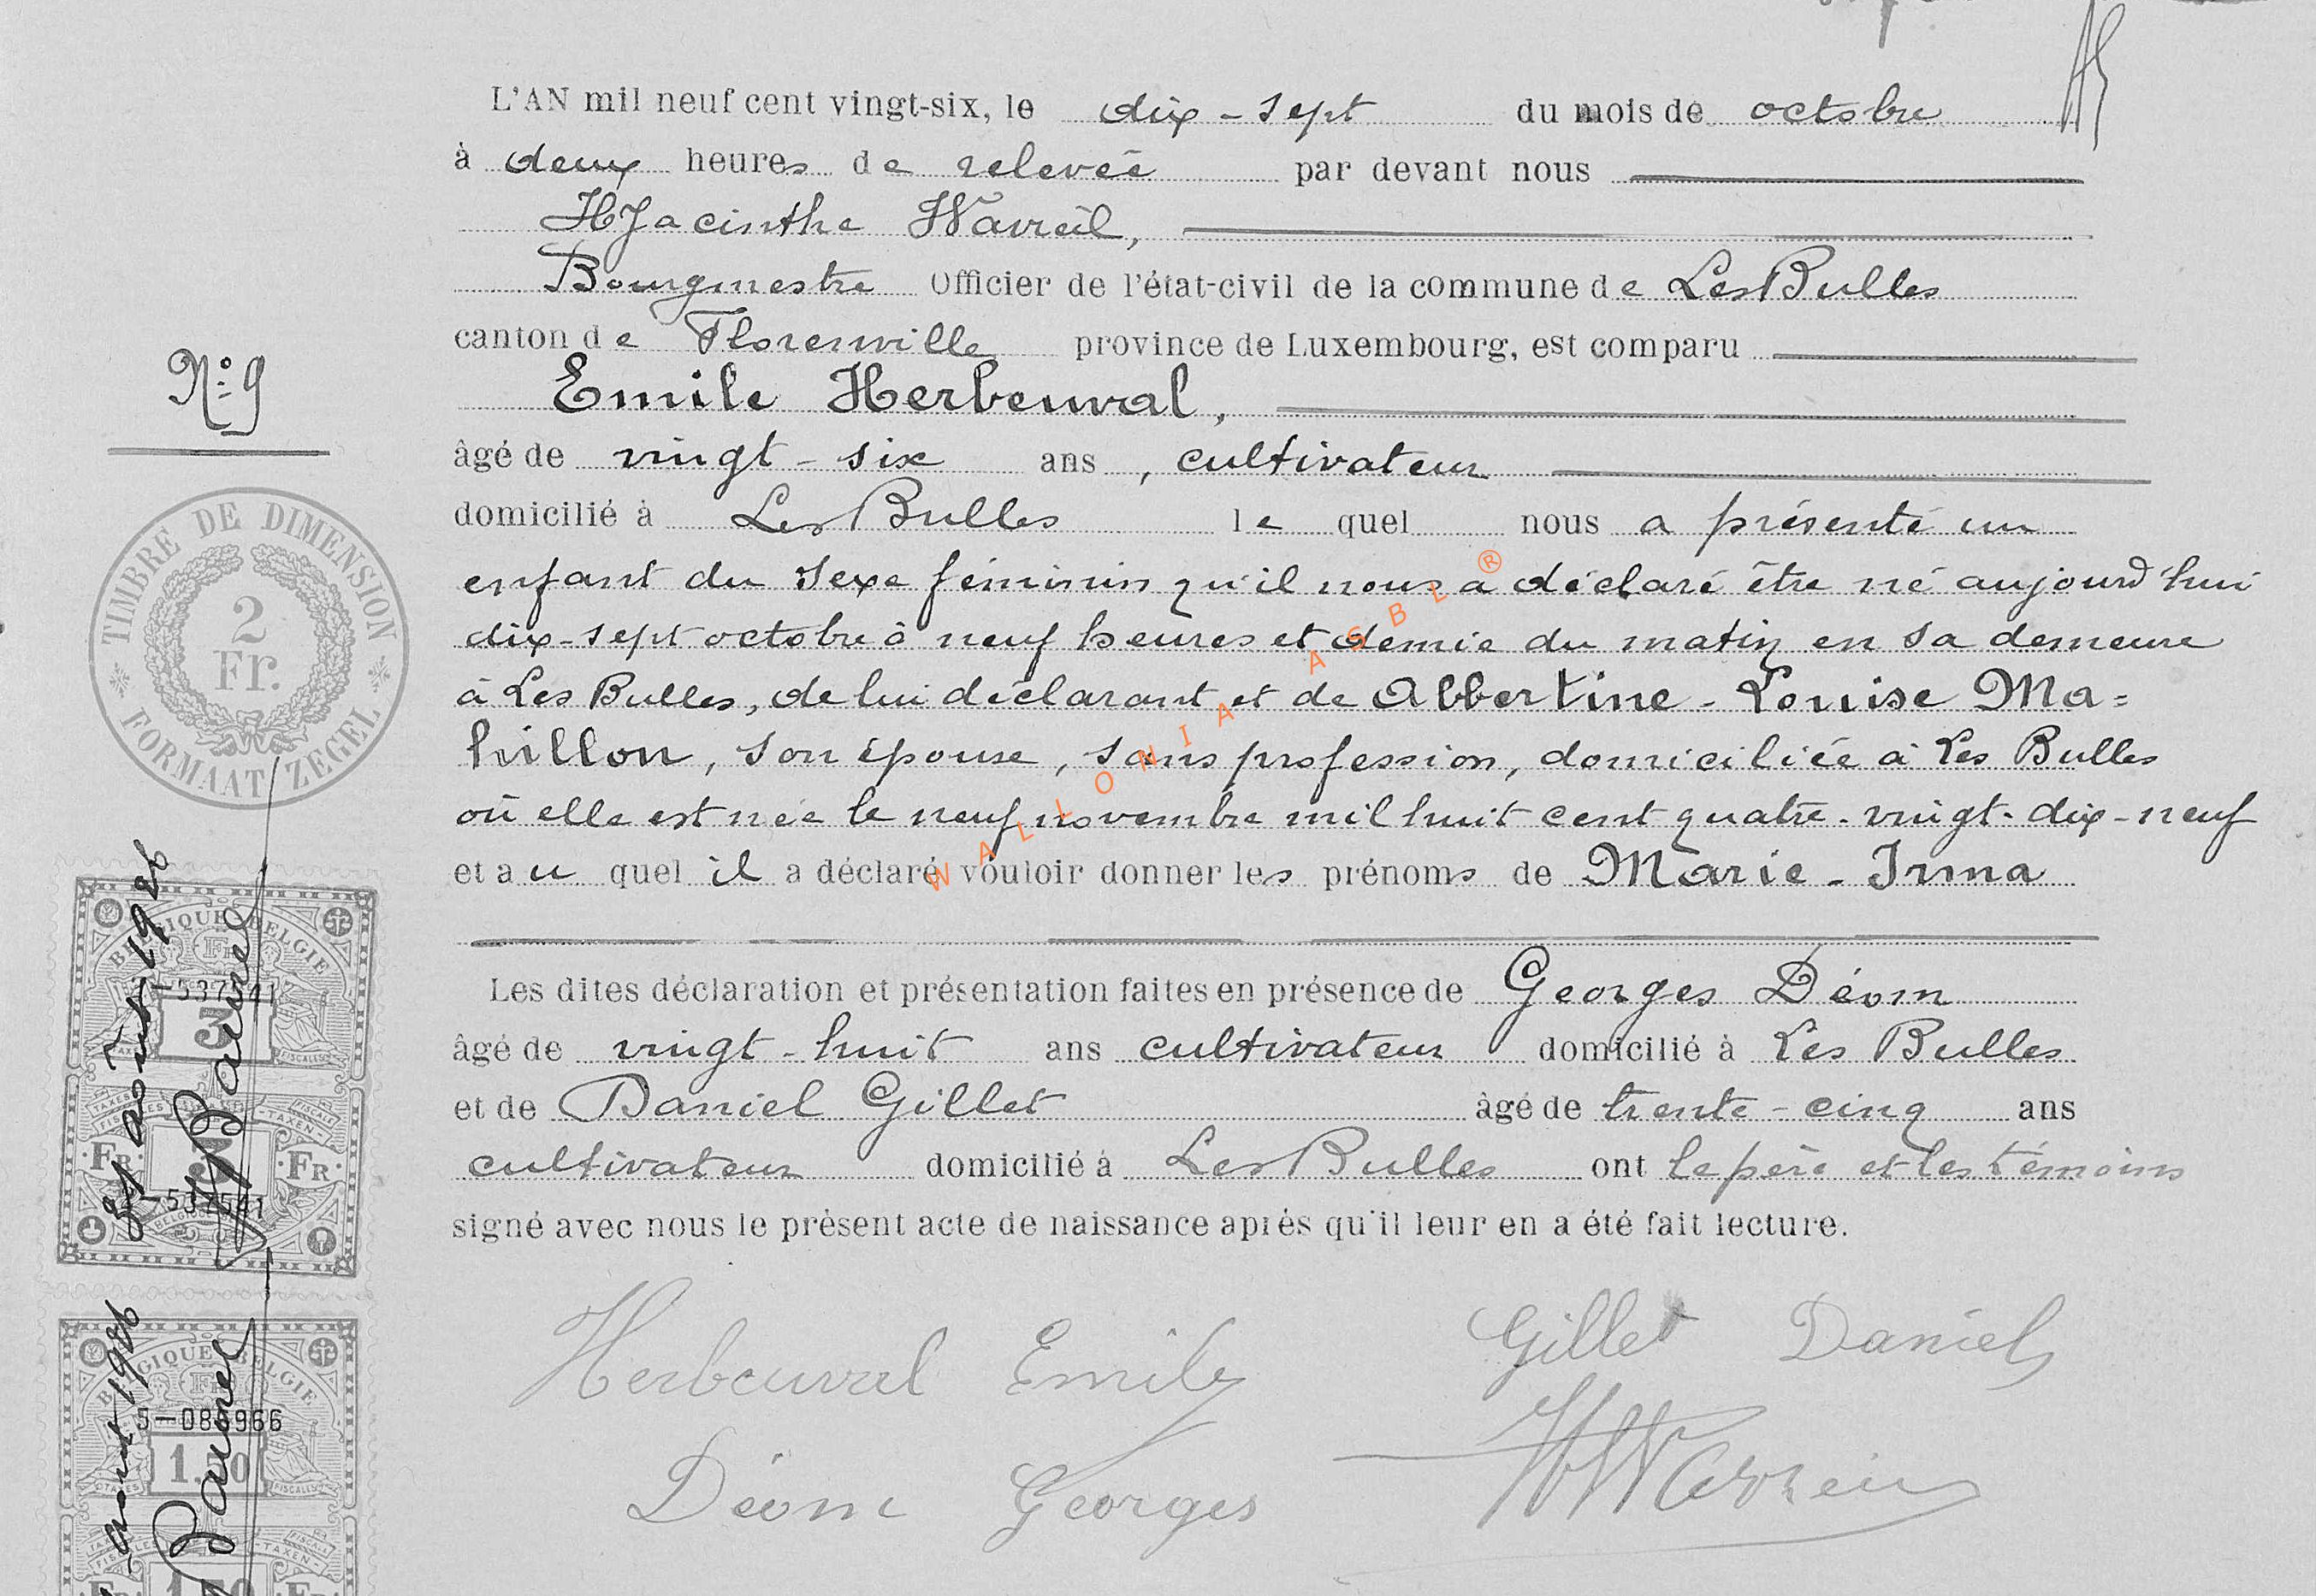 L'AN mil neuf cent vingt-six, le dix-sept du mois de octobre
à deux heures de relevée par devant nous
Hyacinthe Wavreil,
Bourgmestre Officier de l'état-civil de la commune de Les Bulles
canton de Florenville province de Luxembourg, est comparu
Emile Herbeuval,
N° 9
âgé de vingt-six ans, cultivateur
domicilié à Les Bulles lequel nous a présenté un
enfant du sexe féminin qu'il nous a déclaré être né aujourd'hui
dix-sept octobre à neuf heures et demie du matin en sa demeure
à Les Bulles, de lui déclarant et de Albertine-Louise Ma=
hillon, son épouse, sans profession, domiciliée à Les Bulles
où elle est née le neuf novembre mil huit cent quatre-vingt-dix-neuf
et au quel il a déclaré vouloir donner les prénoms de Marie-Irma
Les dites déclaration et présentation faites en présence de Georges Déom
âgé de vingt-huit ans cultivateur domicilié à Les Bulles
et de Daniel Gillet âgé de trente-cinq ans
cultivateur domicilié à Les Bulles ont le père et les témoins
signé avec nous le présent acte de naissance après qu'il leur en a été fait lecture.
Herbeuval Emile
Gillet Daniel
Déom Georges
HWavreil
TIMBRE DE DIMENSION
2
Fr.
FORMAAT ZEGEL
BELGIQUE BELGIE
537541
3
FR FR
537541
août 1926
BELGIQUE BELGIE
5-086966
1.50
1926
WALLONIA ASBL ®